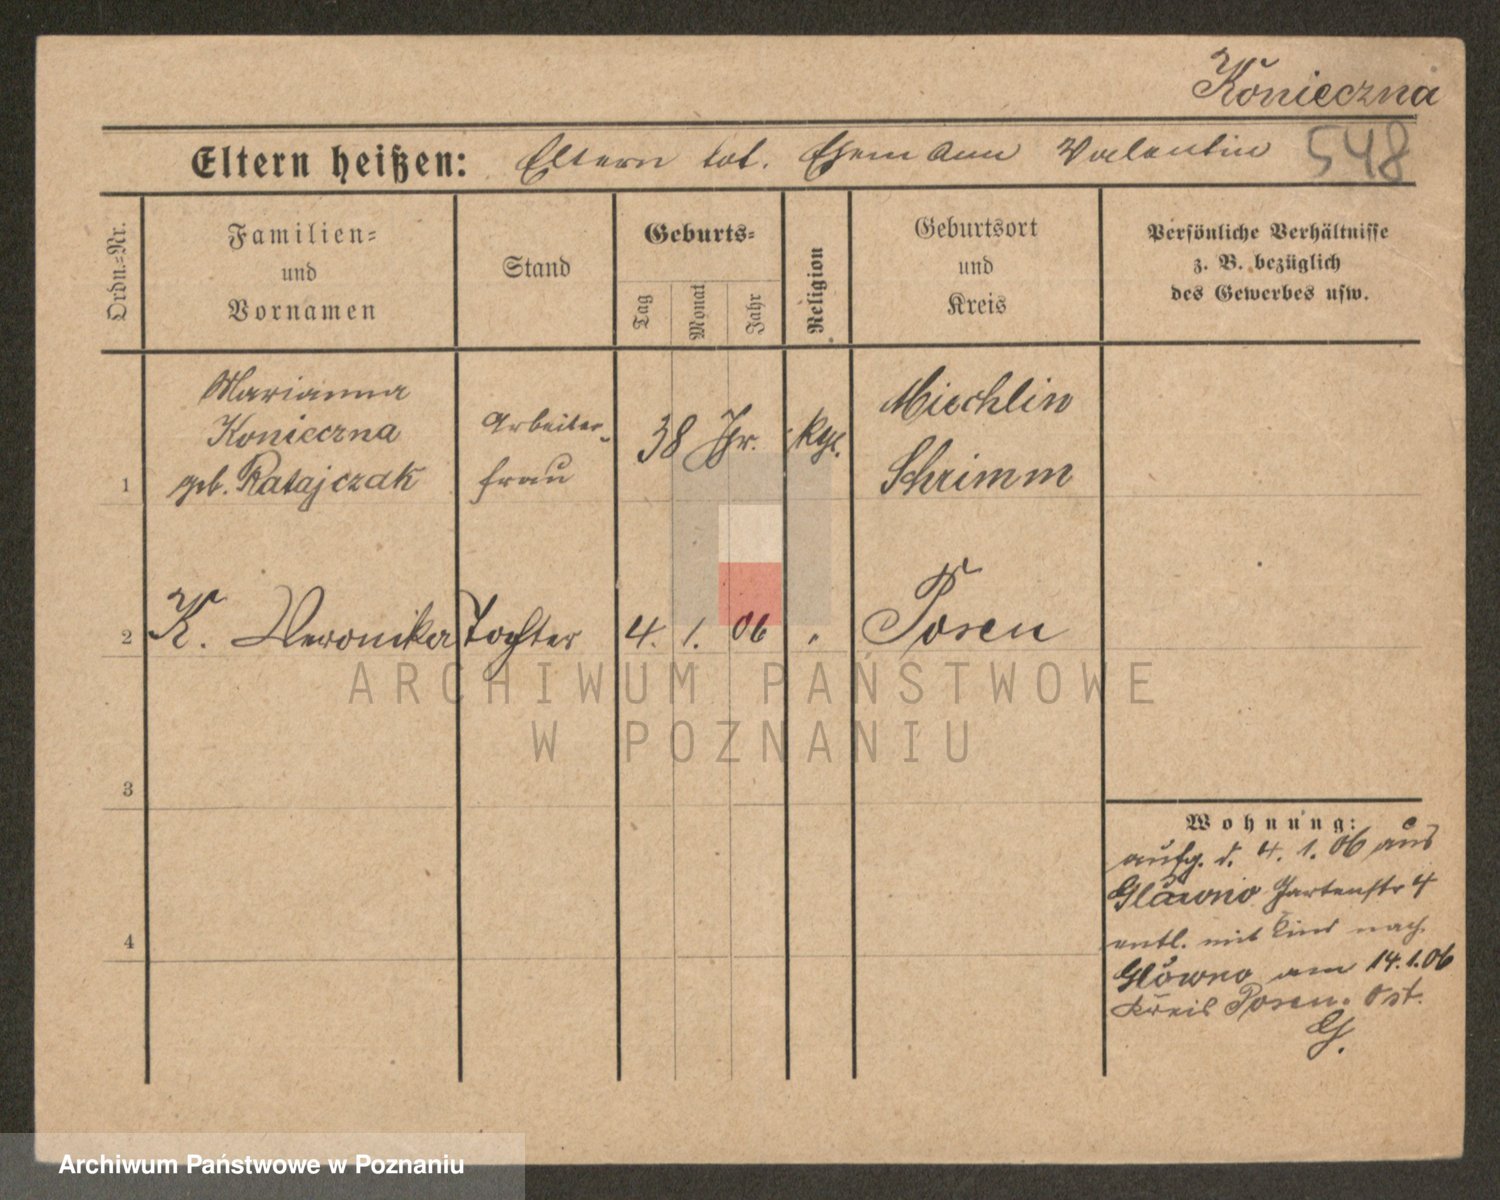 Konieczna
Eltern heißen: Eltern tot. Ehemann Valentin 548
Ordn.-Nr.
Familien-
und
Vornamen
Stand
Geburts-
Tag
Monat
Jahr
Religion
Geburtsort
und
Kreis
Persönliche Verhältnisse
z. B. bezüglich
des Gewerbes usw.
1
Marianna
Konieczna
geb. Ratajczak
Arbeiter-
frau
38 Jhr.
kth.
Miechlin
Schrimm
2
K. Veronika
Tochter
4. 1. 06
"
Posen
3
4
Wohnung:
aufg. d. 4. 1. 06 aus
Glówno Gartenstr 4
entl. mit Kind nach
Glówno am 14.1.06
Kreis Posen. Ost.
G.
ARCHIWUM PAŃSTWOWE
W POZNANIU
Archiwum Państwowe w Poznaniu